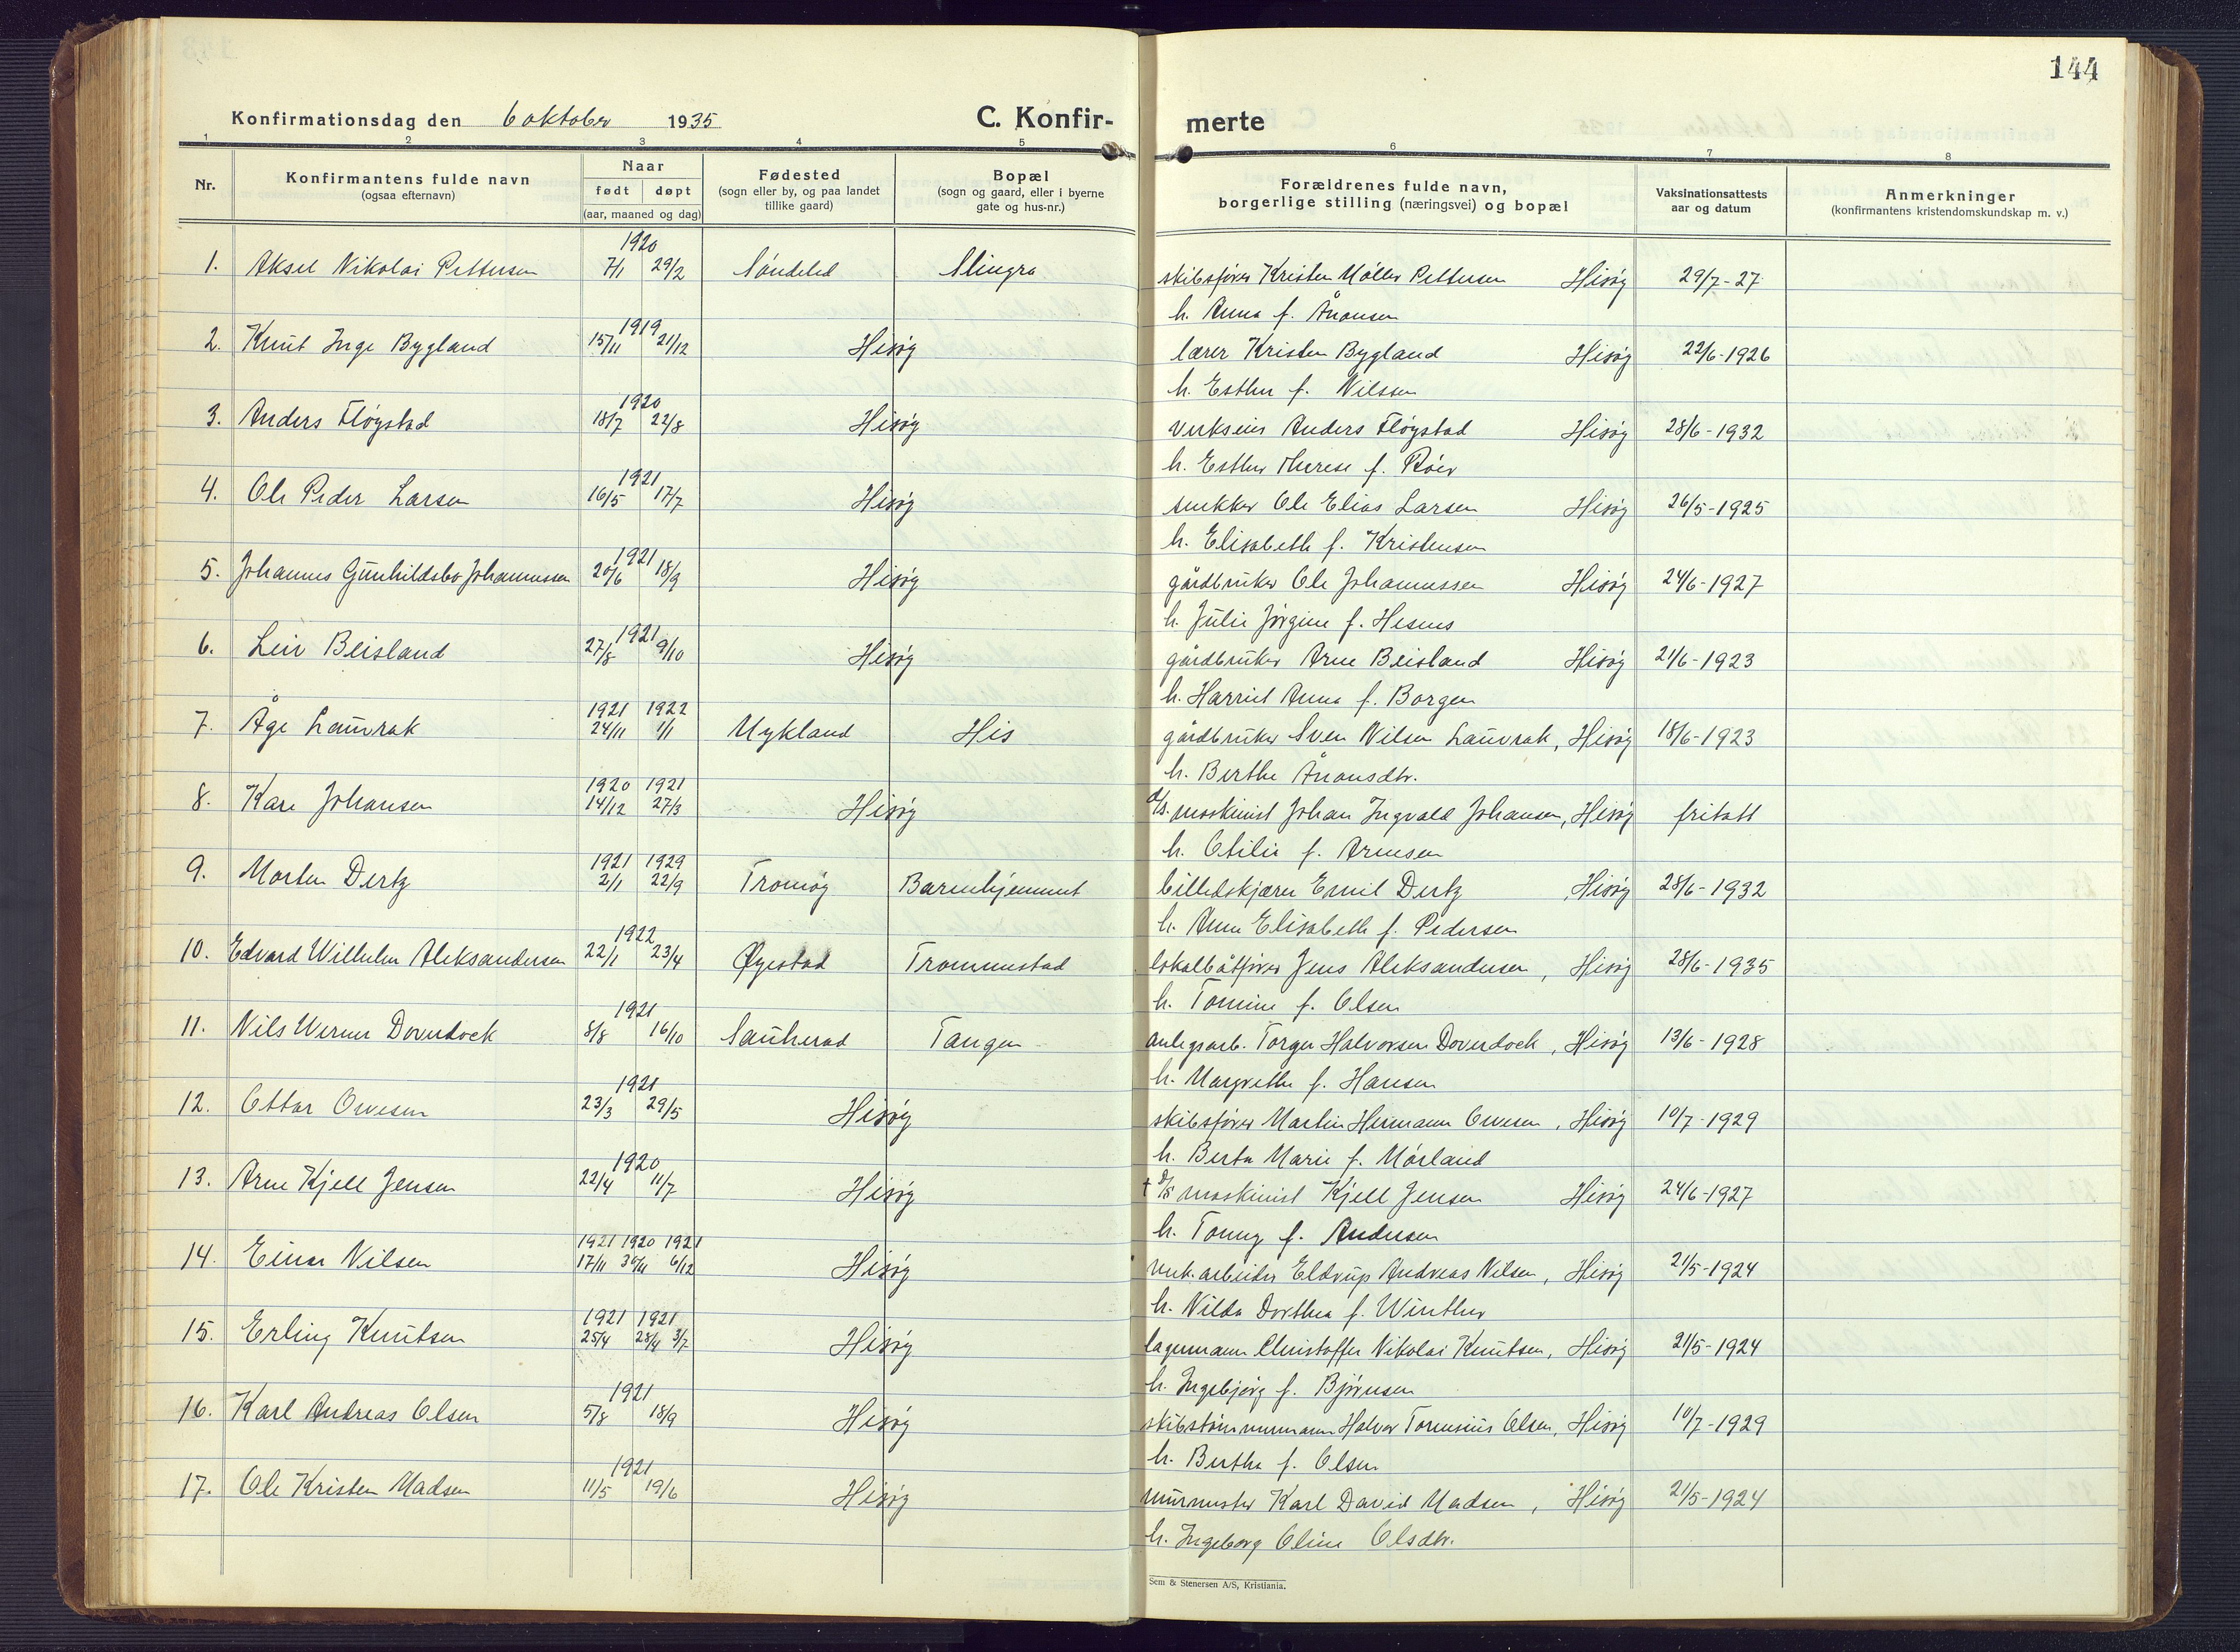 144
Konfirmationsdag den 6 oktober 1935 C. Konfir- merte
1 2 3 4 5 6 7 8
Nr. Konfirmantens fulde navn (ogsaa efternavn) Naar født døpt (aar, maaned og dag) Fødested (sogn eller by, og paa landet tillike gaard) Bopæl (sogn og gaard, eller i byerne gate og hus-nr.) Forældrenes fulde navn, borgerlige stilling (næringsvei) og bopæl Vaksinationsattests aar og datum Anmerkninger (konfirmantens kristendomskundskap m. v.)
1920
1. Aksel Nikolai Pettersen 7/1 29/2 Søndeled Slingra skibsfører Kristen Møller Pettersen Hisøy 29/7-27
h. Anna f. Ånonsen
1919
2. Knut Inge Bygland 15/11 21/12 Hisøy lærer Kristen Bygland Hisøy 22/6-1926
h. Esther f. Nilssen
1920
3. Anders Fløgstad 18/7 22/8 Hisøy verkseier Anders Fløgstad Hisøy 28/6-1932
h. Esther Therese f. Røer
1921
4. Ole Peder Larsen 16/5 17/7 Hisøy snekker Ole Elias Larsen Hisøy 26/5-1925
h. Elisabeth f. Kristensen
1921
5. Johannes Gunhildsbo Johannessen 20/6 18/9 Hisøy gårdbruker Ole Johannessen Hisøy 24/6-1927
h. Julie Jørgine f. Hesnes
1921
6. Leiv Beisland 27/8 9/10 Hisøy gårdbruker Arne Beisland Hisøy 21/6-1923
h. Harriet Anna f. Borgen
1921 1922
7. Åge Lauvrak 24/11 1/1 Mykland His gårdbruker Sven Nilsen Lauvrak, Hisøy 18/6-1923
h. Berthe Ånonsdtr.
1920 1921
8. Kåre Johansen 14/12 27/3 Hisøy d/s. maskinist Johan Ingvald Johansen, Hisøy fritatt
h. Otilie f. Arnesen
1921 1929
9. Morten Dertz 2/1 22/9 Tromøy Barnehjemmet billedskjærer Emil Dertz, Hisøy 28/6-1932
h. Anne Elisabeth f. Pedersen
1922
10. Edvard Wilhelm Aleksandersen 22/1 23/4 Øyestad Trommestad lokalbåtfører Jens Aleksandersen, Hisøy 28/6-1935
h. Tomine f. Olsen
1921
11. Nils Werner Doverdock 8/8 16/10 Sauherad Tangen anlegsarb. Torger Halvorsen Doverdock, Hisøy 13/6-1928
h. Margrethe f. Hansen
1921
12. Ottar Ovesen 23/3 29/5 Hisøy skibsfører Martin Hermann Ovesen, Hisøy 10/7-1929
h. Berta Marie f. Mørland
1920
13. Arne Kjell Jensen 22/4 11/7 Hisøy † d/s maskinist Kjell Jensen Hisøy 24/6-1927
h. Tonny f. Andersen
1921 1920 1921
14. Einar Nilsen 17/11 30/11 6/12 Hisøy verk.arbeider Eldrup Andreas Nilsen, Hisøy 21/5-1924
h. Nilda Dorthea f. Winther
1921 1921
15. Erling Knutsen 25/4 28/4 3/7 Hisøy lagermann Christoffer Nikolai Knutsen, Hisøy 21/5-1924
h. Ingebjørg f. Bjørnsen
1921
16. Karl Andreas Olsen 5/8 18/9 Hisøy skibstømmermann Halvor Tomenius Olsen, Hisøy 10/7-1929
h. Bertha f. Olsen
1921
17. Ole Kristen Madsen 11/5 19/6 Hisøy murmester Karl David Madsen, Hisøy 21/5-1924
h. Ingeborg Oline Olsdtr.
Sem & Stenersen A/S, Kristiania.